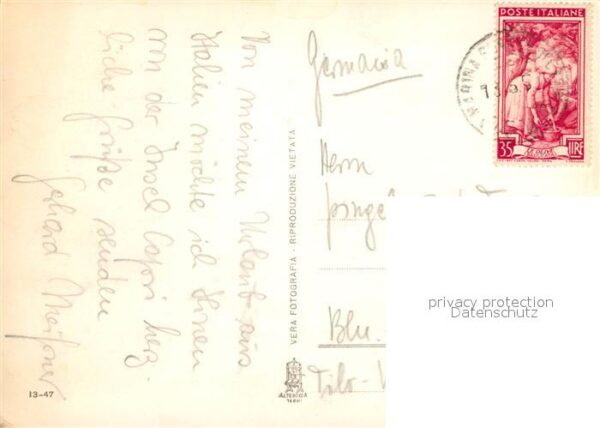 Von meinem Urlaub aus
Italien möchte ich Ihnen
von der Insel Capri herz-
liche Grüße senden
Gerhard
Germania
Herrn
Blu
POSTE ITALIANE
35 LIRE
VERA FOTOGRAFIA - RIPRODUZIONE VIETATA
ALTEROCCA
TERNI
13-47
privacy protection
Datenschutz